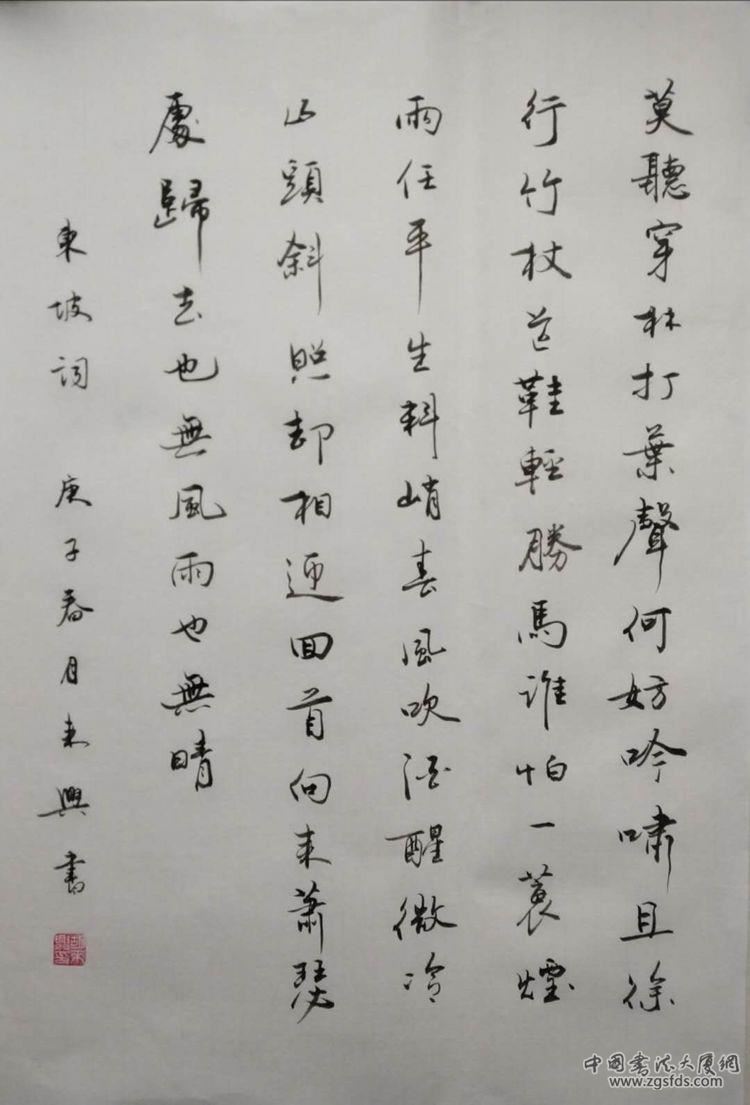 莫聽穿林打葉聲何妨吟嘯且徐
行竹杖芒鞋輕勝馬誰怕一蓑煙
雨任平生料峭春風吹酒醒微冷
山頭斜照却相迎回首向来蕭瑟
處歸去也無風雨也無晴
東坡詞 庚子春月来興書
中国书法大厦網
www.zgsfds.com